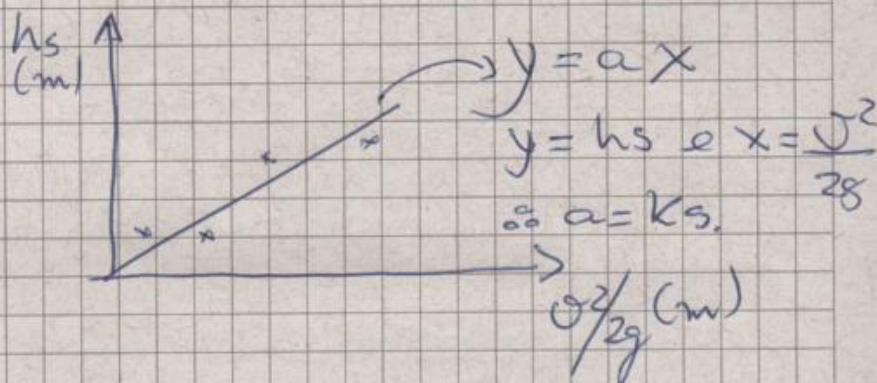 hs
(m)
y = a x
y = hs e x = v²/2g
∴ a = Ks.
v²/2g (m)